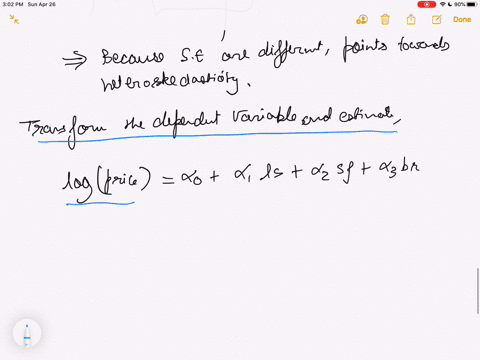 3:02 PM Sun Apr 26
90%
Done
⇒ Because S.E are different, points towards
heteroskedasticity.
Transform the dependent variable and estimate,
log(price) = α0 + α1 ls + α2 sf + α3 br